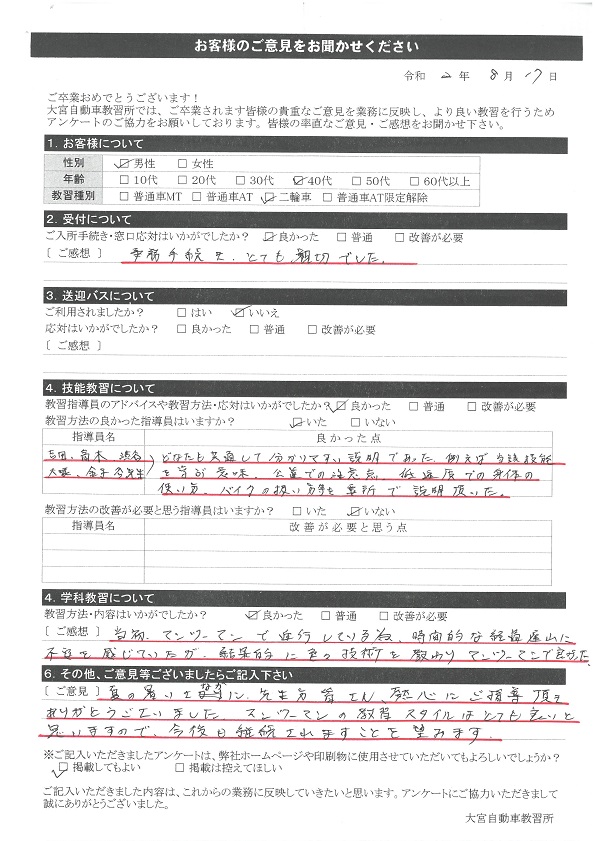 お客様のご意見をお聞かせください
令和 二 年 8 月 17 日
ご卒業おめでとうございます！
大宮自動車教習所では、ご卒業されます皆様の貴重なご意見を業務に反映し、より良い教習を行うため
アンケートのご協力をお願いしております。皆様の率直なご意見・ご感想をお聞かせ下さい。
1. お客様について
性別 ☑男性 □女性
年齢 □10代 □20代 □30代 ☑40代 □50代 □60代以上
教習種別 □普通車MT □普通車AT ☑二輪車 □普通車AT限定解除
2. 受付について
ご入所手続き・窓口応対はいかがでしたか？ ☑良かった □普通 □改善が必要
[ ご感想 ] 事務手続き、とても親切でした。
3. 送迎バスについて
ご利用されましたか？ □はい ☑いいえ
応対はいかがでしたか？ □良かった □普通 □改善が必要
[ ご感想 ]
4. 技能教習について
教習指導員のアドバイスや教習方法・応対はいかがでしたか？ ☑良かった □普通 □改善が必要
教習方法の良かった指導員はいますか？ ☑いた □いない
指導員名 良かった点
吉田、高木、渋谷 どなたも共通して分かりやすい説明であった。例えば当該技能
大塚、金子 各先生 を学ぶ意味、公道での注意点、低速度での身体の
使い方、バイクの扱い方等を要所で説明頂いた。
教習方法の改善が必要と思う指導員はいますか？ □いた ☑いない
指導員名 改善が必要と思う点
4. 学科教習について
教習方法・内容はいかがでしたか？ ☑良かった □普通 □改善が必要
[ ご感想 ] 当初、マンツーマンで進行している為、時間的な
不安を感じていたが、結果的に 技術を教わりマンツーマンで良かった。
6. その他、ご意見等ございましたらご記入下さい
[ ご意見 ] 夏の暑いさなかに、先生方皆さん、熱心にご指導頂き
ありがとうございました。マンツーマンの教習スタイルはとても良いと
思いますので、今後も継続されますことを望みます。
※ご記入いただきましたアンケートは、弊社ホームページや印刷物に使用させていただいてもよろしいでしょうか？
☑掲載してもよい □掲載は控えてほしい
ご記入いただきました内容は、これからの業務に反映していきたいと思います。アンケートにご協力いただきまして
誠にありがとうございました。
大宮自動車教習所